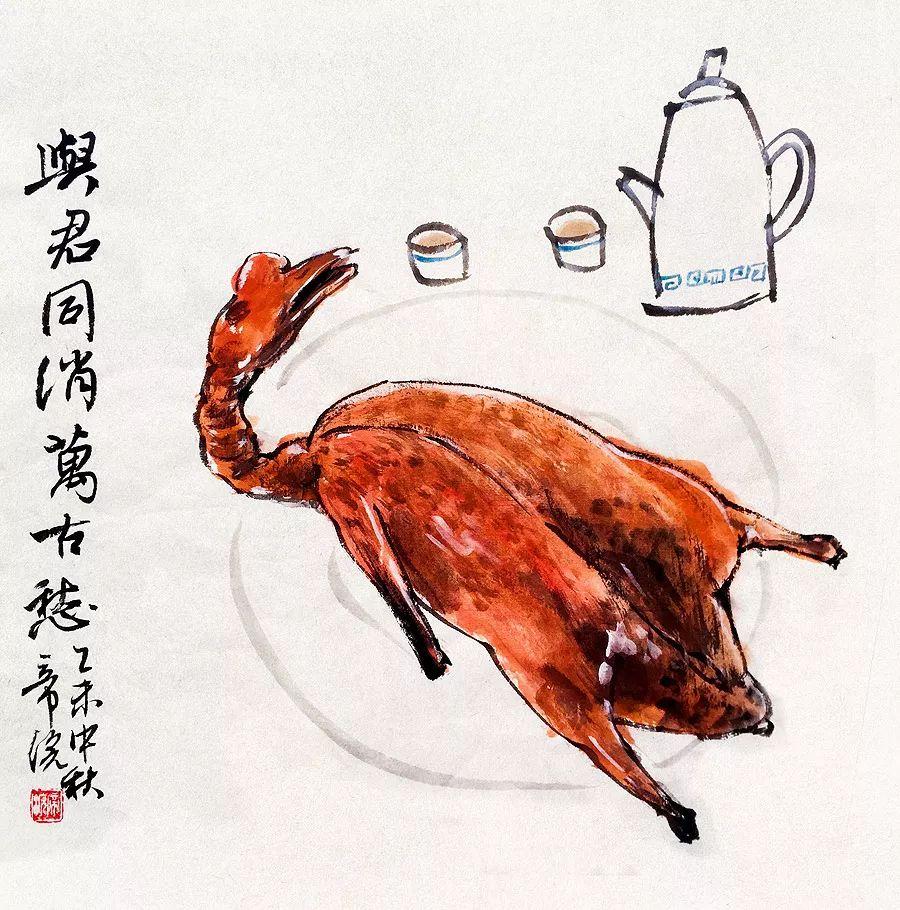 與君同消萬古愁
乙未中秋